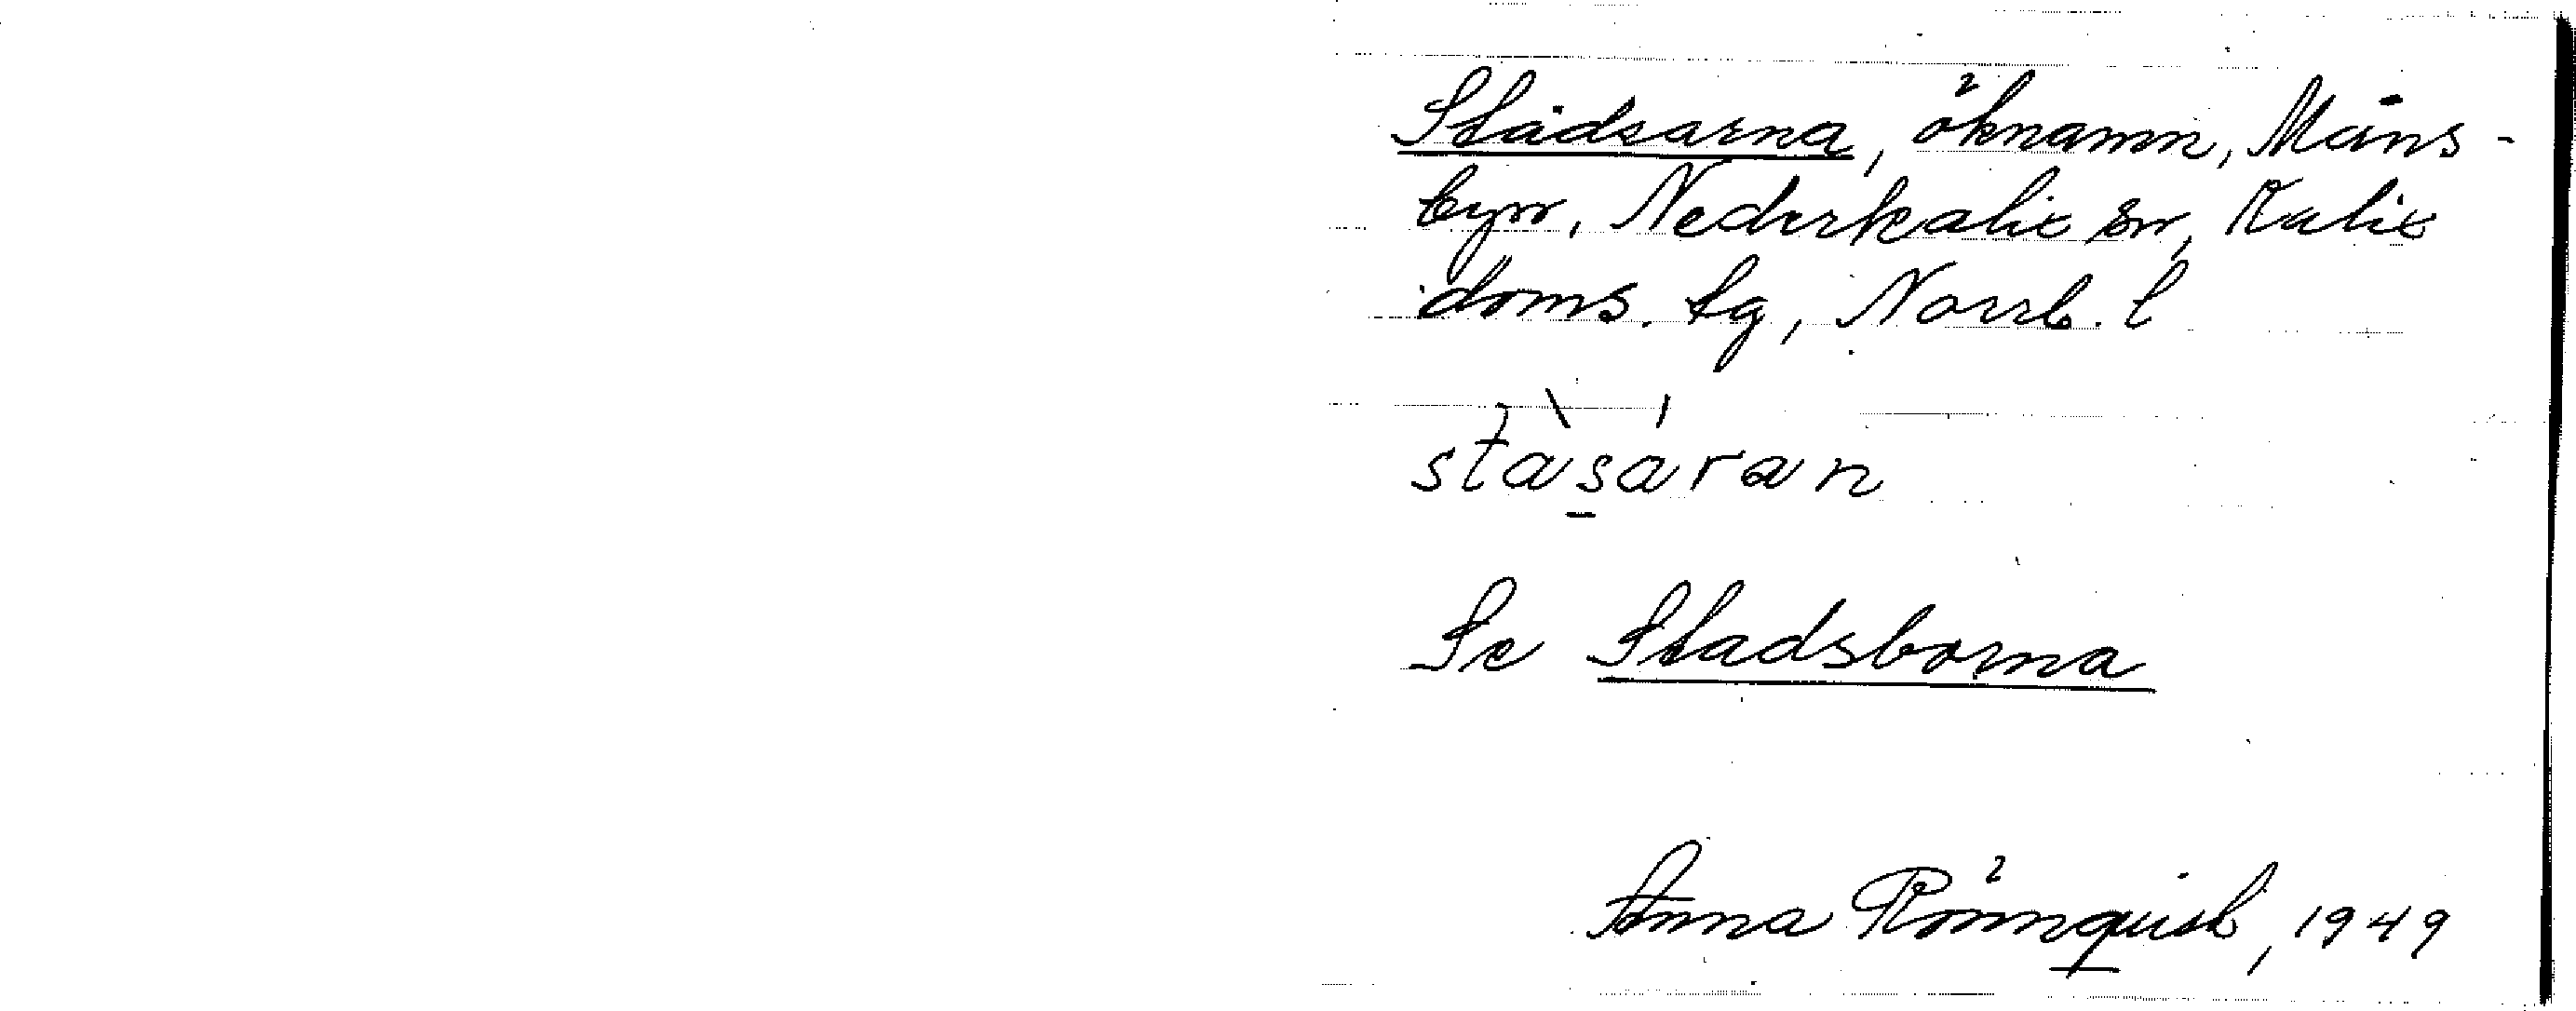 Stadsarna, öknamn, Måns-
byn, Nederkalix sn, Kalix
doms. tg, Norrb. l
stasaran
Se Stadsborna
Anna Rönnquist, 1949